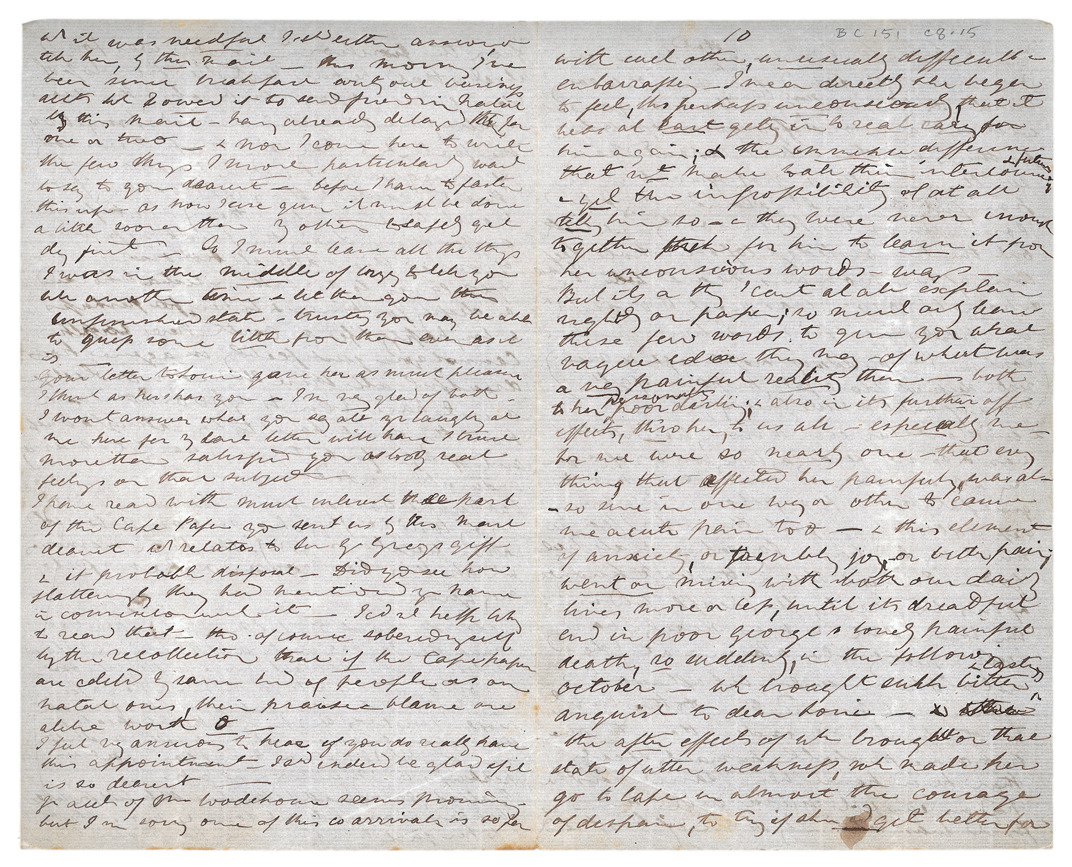 it was needful I sd either answer or
tell her, by this mail — this morn I've
been since breakfast
I owed it to send in Natal
by this mail — hav.g already delayed for
one or two — & now I come here to write
the few things I more particularly want
to say to you dearest — before I have to fasten
this up — as now case it must be done
a little sooner than others to safely get
dry first — So I must leave all the things
I was in the middle of to tell you
till another time & let them go in this
unfinished state — trusting you may be able
to guess some little from them even as it
is —
your letter to Louie gave her as much pleasure
I think as hers has you — I'm very glad of both.
I won't answer what you say at me
me here for my dear letter will have I trust
more than satisfied you as to my real
feelings on that subject —
I have read with much interest the part
of the Cape Paper you sent us by this mail
dearest wh relates to Sir G Grey's gift
& its probable disposal — Did you see how
flatteringly they had mentioned yr name
in connexion with it I cd not help
to read that — tho' of course sobered myself
by the recollection that if the Cape papers
are edited by same kind of people as our
Natal ones, their praise & blame are
alike worth 0 —
I feel very anxious to hear if you do really have
this appointment — I sd indeed be glad if it
is so dearest —
Yr acct of Mr Woodehouse seems promising —
but I'm sorry one of his co arrivals is so far
10
BC 151 C8.15
with each other, unusually difficult &
embarrassing — I mean directly she began
to feel, tho perhaps unconsciously, that it
was at last getting in to real caring for
him again; & the immense difference
that wd make with their intercourse & future
& yet the impossibility of at all
telling him so — & they were never enough
together for him to learn it from
her unconscious words — ways —
But it's a thing I can't at all explain
rightly on paper; so must only leave
these few words, to give you what
vague idea they may — of what was
a very painful reality then — both
to her poor darling personally, & also in its further off
effects, thro her, to us all — especially me —
for we were so nearly one — that every
thing that affected her painfully, was al-
so sure in one way or other to cause
me acute pain too — & this element
of anxiety, or joy, or bitter pain,
went on mixing with both our daily
lives more or less, until its dreadful
end in poor George's lonely painful
death, so suddenly, in the following
October — wh brought such bitter & lasting
anguish to dear Louie — &
the after effects of wh brought on that
state of utter weakness, wh made her
go to Cape in almost the courage
of despair, to try if she cd get better for